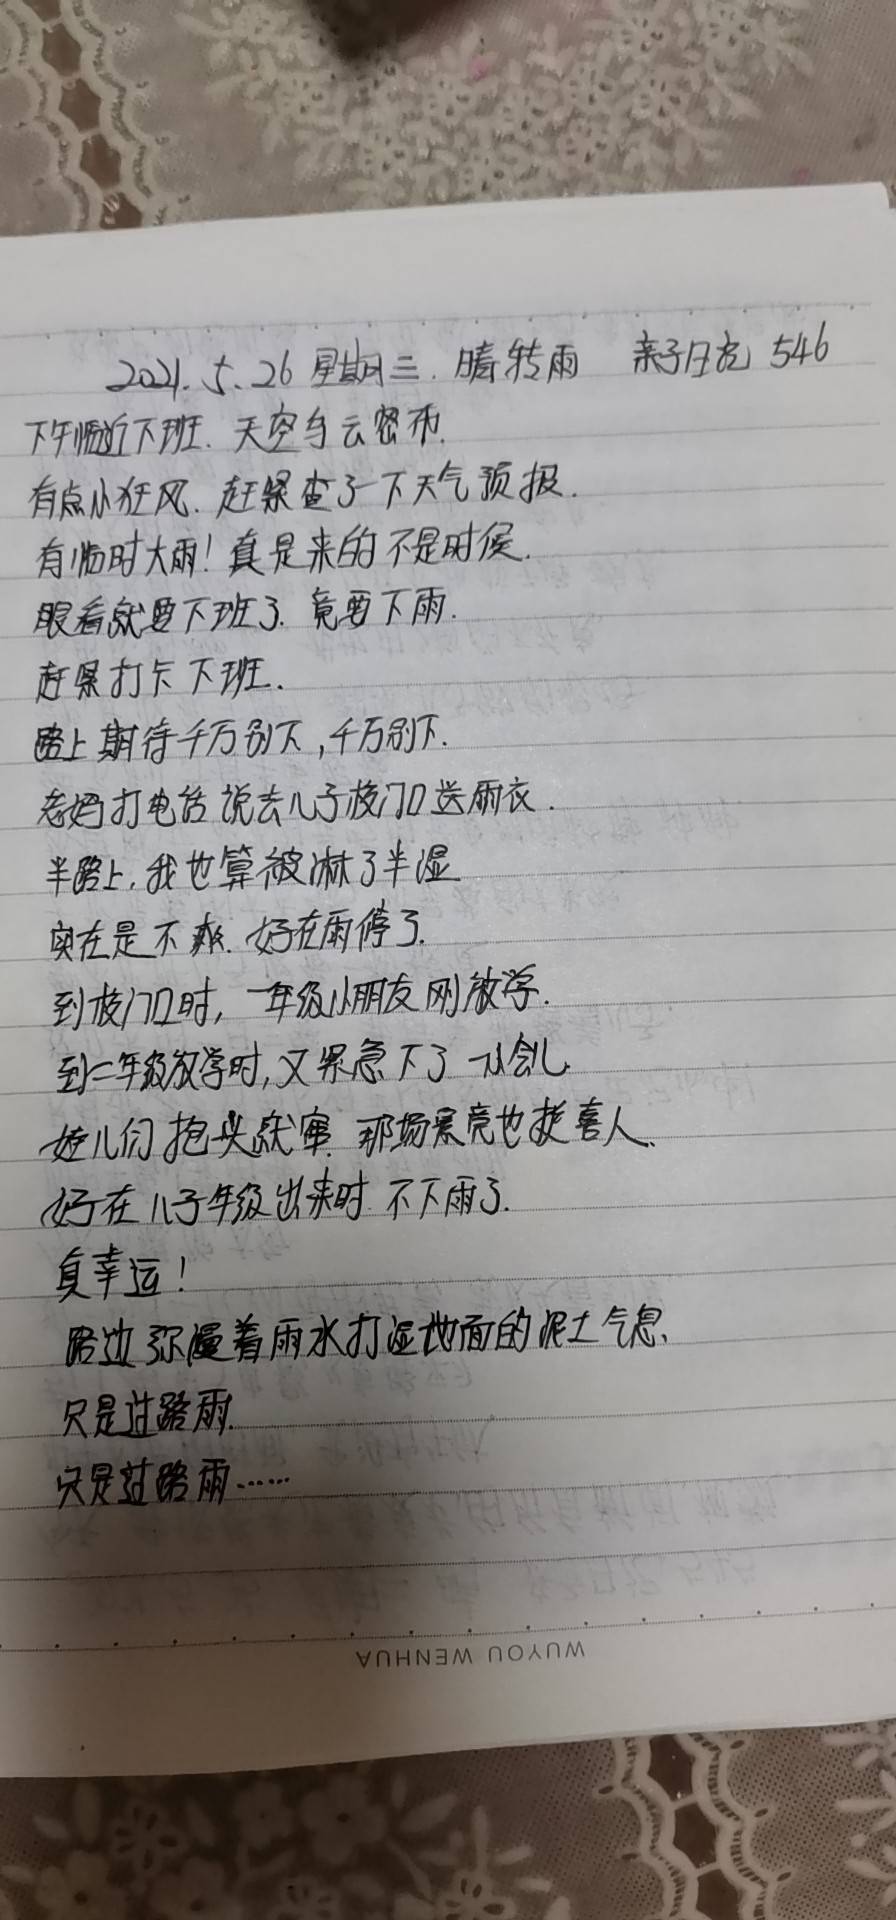 2021.5.26 星期三. 晴转雨 亲子日记 546
下午临近下班. 天空乌云密布.
有点小狂风. 赶紧查了一下天气预报.
有临时大雨！真是来的不是时候.
眼看就要下班了. 竟要下雨.
赶紧打卡下班.
路上期待千万别下,千万别下.
老妈打电话说去儿子校门口送雨衣.
半路上,我也算被淋了半湿
实在是不爽. 好在雨停了.
到校门口时,一年级小朋友刚放学.
到二年级放学时,又紧急下了一小会儿
娃儿们抱头就窜. 那场景竟也挺喜人.
好在儿子年级出来时.不下雨了.
真幸运！
路边弥漫着雨水打湿地面的泥土气息.
只是过路雨.
只是过路雨……
WUYOU WENHUA